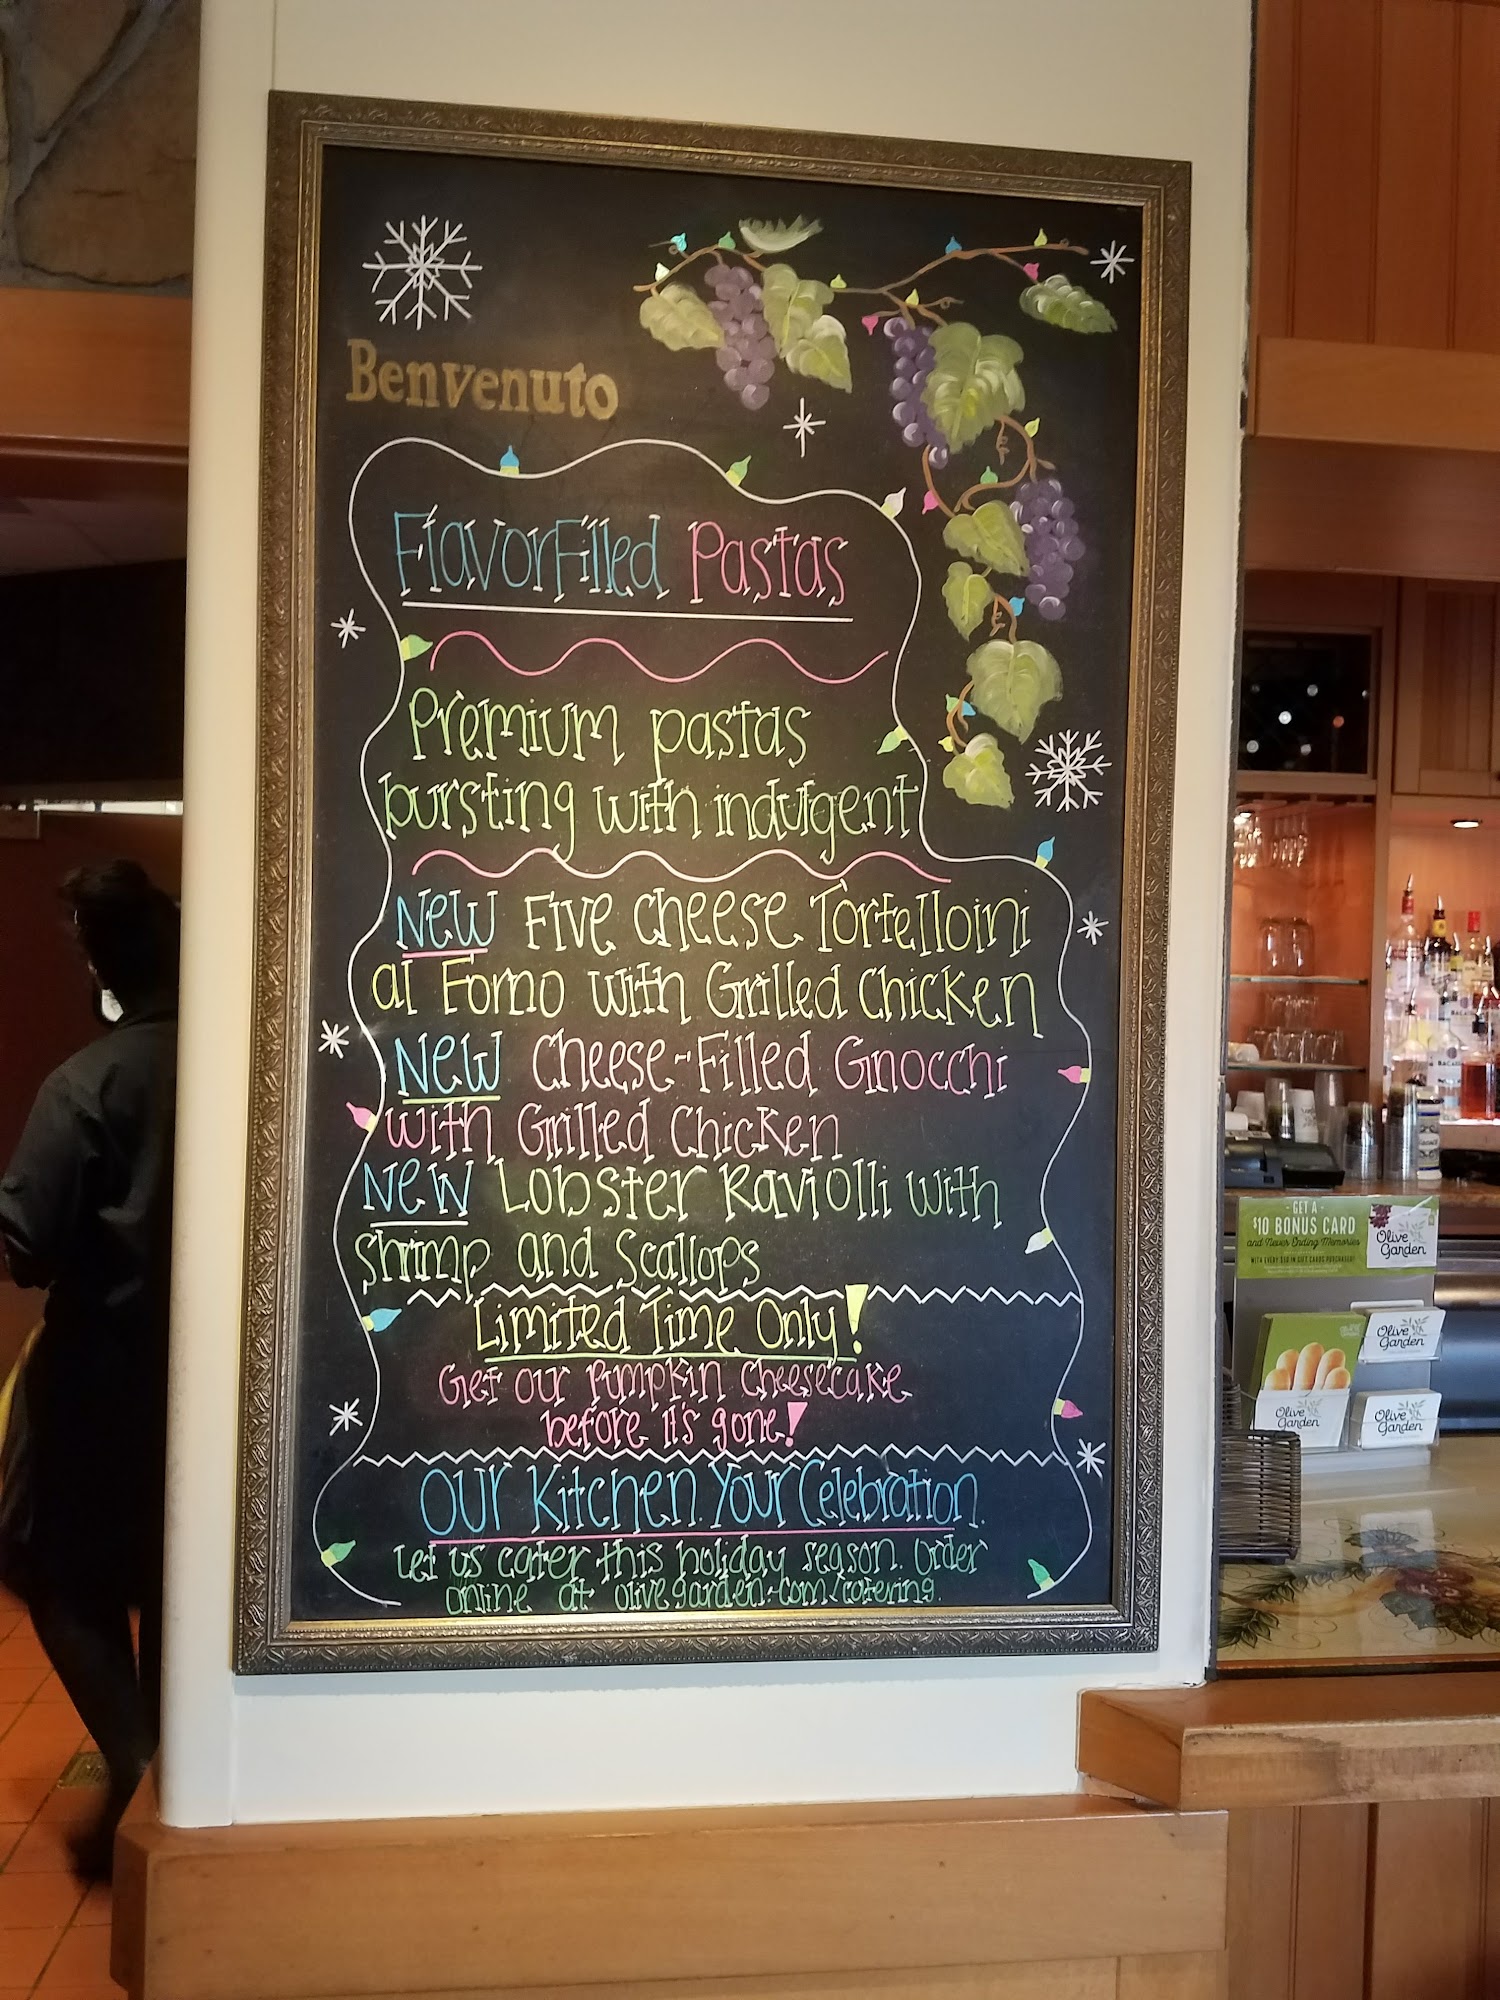 Benvenuto
FlavorFilled Pastas
Premium pastas
bursting with indulgent
New Five Cheese Tortelloini
al Forno with Grilled Chicken
New Cheese-Filled Gnocchi
with Grilled Chicken
New Lobster Raviolli with
shrimp and Scallops
Limited Time Only!
Get our Pumpkin Cheesecake
before it's gone!
Our Kitchen. Your Celebration.
Let us cater this holiday season. Order
online at olivegarden.com/catering.
- GET A -
$10 BONUS CARD
and Never Ending Memories
WITH EVERY $50 IN GIFT CARDS PURCHASED!
Olive
Garden
Olive
Garden
Olive
Garden
Olive
Garden